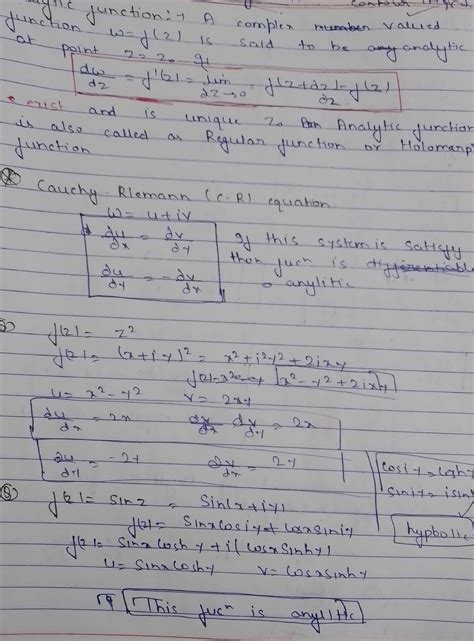 function:→ A complex number valued
function w=f(z) is said to be any analytic
at point z=z₀ if
dw/dz = f'(z) = lim dz→0 = f(z+dz)-f(z)/dz
• exist and is unique z₀ Analytic function
is also called as Regular function or
function
Cauchy-Riemann (C-R) equation
w = u+iv
∂u/∂x = ∂v/∂y If this system is satisfy
then fucⁿ is differentiable
∂u/∂y = -∂v/∂x anylitic
f(z) = z²
f(z) = (x+iy)² = x²+i²y²+2ixy
x²-y²+2ixy
u = x²-y² v = 2xy
∂u/∂x = 2x ∂v/∂y = 2x
∂u/∂y = -2y ∂v/∂x = 2y
cosiy = coshy
siniy = isin
hypbolic
f(z) = sinz = sin(x+iy)
f(z) = sinxcosiy + cosxsiniy
f(z) = sinxcoshy + i(cosxsinhy)
u = sinxcoshy v = cosxsinhy
This fucⁿ is anylitic